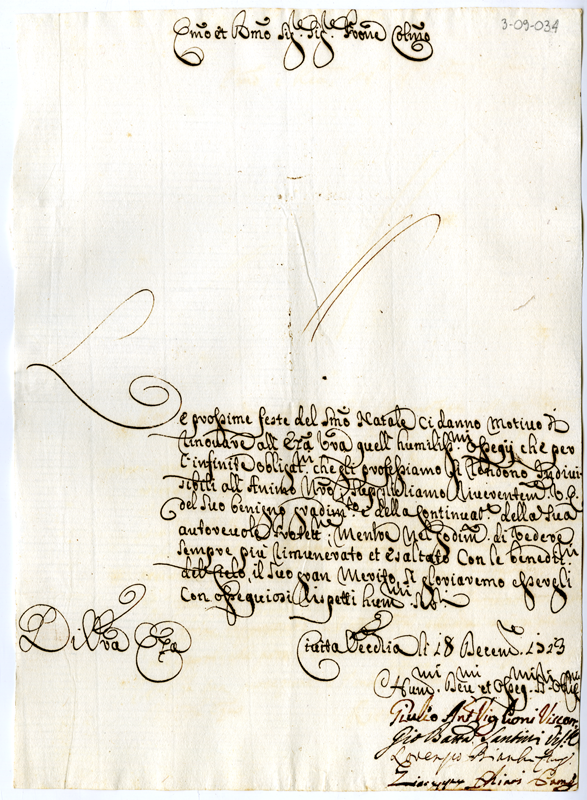 3-09-034
Emo et Rmo Sig.re Sig.re Prone Colmo
Le prossime feste del Smo Natale ci danno Motivo di
rinovare all' Eza Vra quell' humiliss.mi Ossequij che per
l'infinite obligat.ni che gli professiamo si rendono Indivi-
sibili all' Animo Nro. Supplichiamo riverentem.te V. E.
del suo benigno gradim.to e della continuat.ne della sua
autorevole Protett.ne, Mentre nel godim.to di vedere
sempre più rimunerato et esaltato con le benedit.ni
del Cielo, il suo gran Merito, si gloriaremo essergli
con ossequiosi rispetti hum.mi Ser.ri
Di Vra Eza
Civitta Vecchia li 18 Decem.
Hum.mi Dev.mi et Osseq.mi
Giulio Ant. Viglioni Viscon
Gio Batta Santini
Lorenzo